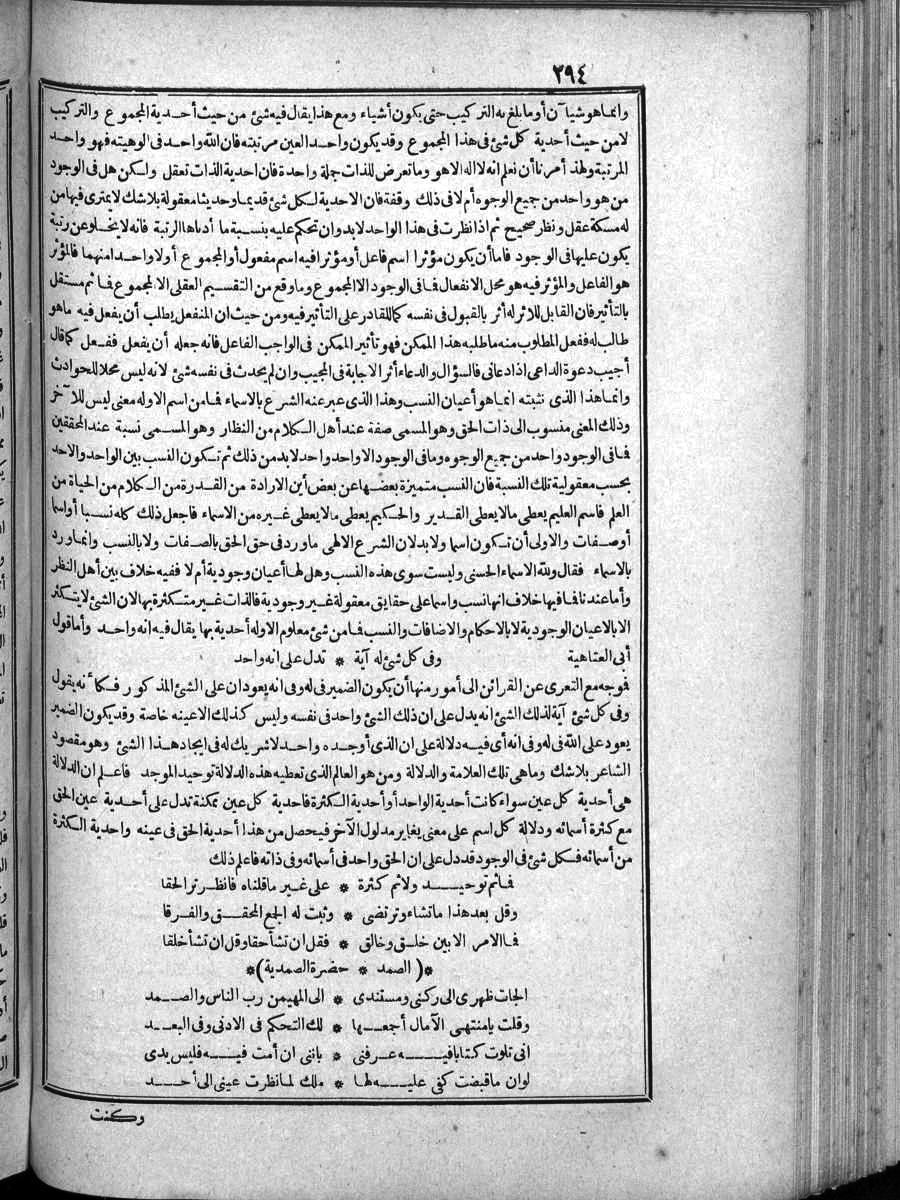 ٢٩٤
وانما هو شيآن أو ما بلغ به التركيب حتى يكون أشياء ومع هذا يقال فيه شئ من حيث أحدية المجموع والتركيب
لا من حيث أحدية كل شئ فى هذا المجموع وقد يكون واحد العين مرتبته فان الله واحد فى الوهيته فهو واحد
المرتبة ولهذا أمرنا أن نعلم انه لا اله الا هو وما تعرض للذات جملة واحدة فان احدية الذات تعقل ولكن هل فى الوجود
من هو واحد من جميع الوجوه أم لا فى ذلك وقفة فان الاحدية لكل شئ قديما وحديثا معقولة بلا شك لا يمترى فيها من
له مسكة عقل ونظر صحيح ثم اذا نظرت فى هذا الواحد لابد وان تحكم عليه بنسبة ما أدناها الرتبة فانه لا يخلو عن رتبة
يكون عليها فى الوجود فاما أن يكون مؤثرا اسم فاعل أو مؤثرا فيه اسم مفعول أو المجموع أو لا واحد امنهما فالمؤثر
هو الفاعل والمؤثر فيه هو محل الانفعال فما فى الوجود الا المجموع وما وقع من التقسيم العقلى الا المجموع فما ثم مستقل
بالتأثير فان القابل للاثر له أثر بالقبول فى نفسه كما للقادر على التأثير فيه ومن حيث ان المنفعل يطلب أن يفعل فيه ما هو
طالب له ففعل المطلوب منه ما طلبه هذا الممكن فهو تأثير الممكن فى الواجب الفاعل فانه جعله أن يفعل ففعل كما قال
أجيب دعوة الداعى اذا دعانى فالسؤال والدعاء أثر الاجابة فى المجيب وان لم يحدث فى نفسه شئ لانه ليس محلا للحوادث
وانما هذا الذى نثبته انما هو أعيان النسب وهذا الذى عبر عنه الشرع بالاسماء فما من اسم الا وله معنى ليس للآخر
وذلك المعنى منسوب الى ذات الحق وهو المسمى صفة عند أهل الكلام من النظار وهو المسمى نسبة عند المحققين
فما فى الوجود واحد من جميع الوجوه وما فى الوجود الا واحد واحد لابد من ذلك ثم تكون النسب بين الواحد والاحد
بحسب معقولية تلك النسبة فان النسب متميزة بعضها عن بعض أين الارادة من القدرة من الكلام من الحياة من
العلم فاسم العليم يعطى مالا يعطى القدير والحكيم يعطى مالا يعطى غيره من الاسماء فاجعل ذلك كله نسبا أو اسما
أو صفات والاولى أن تكون اسما ولابد لان الشرع الالهى ما ورد فى حق الحق بالصفات ولا بالنسب وانما ورد
بالاسماء فقال ولله الاسماء الحسنى وليست سوى هذه النسب وهل لها أعيان وجودية أم لا ففيه خلاف بين أهل النظر
وأما عندنا فما فيها خلاف انها نسب واسما على حقايق معقولة غير وجودية فالذات غير متكثرة بها لان الشئ لا يتكثر
الا بالاعيان الوجودية لا بالاحكام والاضافات والنسب فما من شئ معلوم الا وله أحدية بها يقال فيه انه واحد وأما قول
أبى العتاهية وفى كل شئ له آية * تدل على انه واحد
فوجه مع التعرى عن القرائن الى أمور منها أن يكون الضمير فى له وفى انه يعودان على الشئ المذكور فكأنه يقول
وفى كل شئ آية لذلك الشئ انه يدل على ان ذلك الشئ واحد فى نفسه وليس كذلك الا عينه خاصة وقد يكون الضمير
يعود على الله فى له وفى انه أى فيه دلالة على ان الذى أوجده واحد لا شريك له فى ايجاد هذا الشئ وهو مقصود
الشاعر بلا شك وما هى تلك العلامة والدلالة ومن هو العالم الذى تعطيه هذه الدلالة توحيد الموجد فاعلم ان الدلالة
هى أحدية كل عين سواء كانت أحدية الواحد أو أحدية الكثرة فاحدية كل عين ممكنة تدل على أحدية عين الحق
مع كثرة أسمائه ودلالة كل اسم على معنى يغاير مدلول الآخر فيحصل من هذا أحدية الحق فى عينه واحدية الكثرة
من أسمائه فكل شئ فى الوجود قد دل على ان الحق واحد فى أسمائه وفى ذاته فاعلم ذلك
فما ثم توحيد ولا ثم كثرة * على غير ما قلناه فانظر ترالحقا
وقل بعد هذا ما تشاء وترتضى * وثبت له الجمع المحقق والفرقا
فما الامر الا بين خلق وخالق * فقل ان تشأ حقا وقل ان تشأ خلقا
*( الصمد * حضرة الصمدية)*
الجات ظهرى الى ركنى ومستندى * الى المهيمن رب الناس والصمد
وقلت يا منتهى الآمال أجعها * لك التحكم فى الادنى وفى البعد
انى تلوت كتابا فيه عرفنى * باننى ان أمت فيه فليس يدى
لو ان ما قبضت كفى عليه لها * ملك لما نظرت عينى الى أحد
وكنت